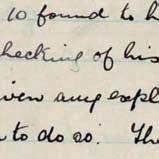 10 found to h
checking of his
iven any expl
n to do so. Th